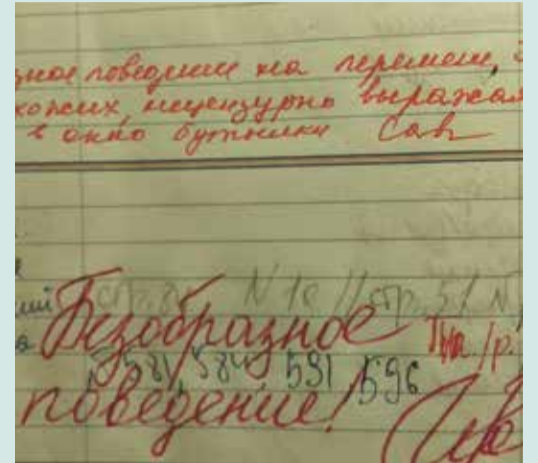 поведение на перемене,
нецензурно выражал
в окно бутылки Сав
стр. N 18 // стр. 51 N
Безобразное
581, 584, 591, 596
поведение!